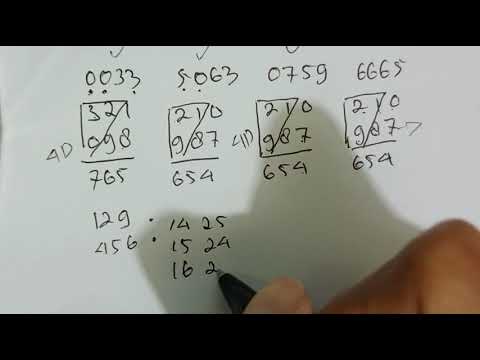 0033 5063 0759 6665
321 210 210 210
4D 098 987 4D 987 987
765 654 654 654
129 • 14 25
456 • 15 24
16 2